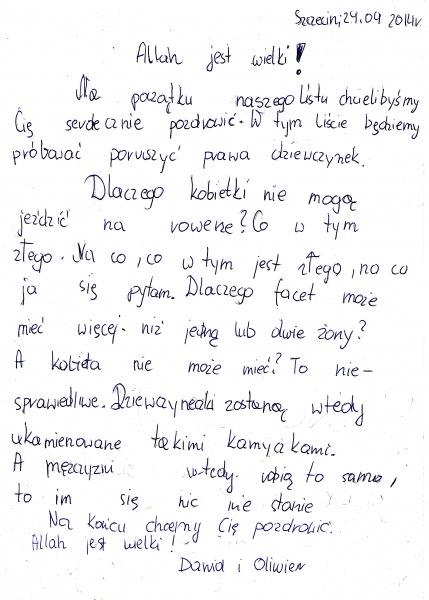 Szczecin, 24.09 2014r
Allah jest wielki!
Na początku naszego listu chcielibyśmy
Cię serdecznie pozdrowić. W tym liście będziemy
próbować poruszyć prawa dziewczynek.
Dlaczego kobietki nie mogą
jeździć na rowerze? Co w tym
złego. Na co, co w tym jest złego, no co
ja się pytam. Dlaczego facet może
mieć więcej niż jedną lub dwie żony?
A kobieta nie może mieć? To nie-
sprawiedliwe. Dziewczyneczki zostaną wtedy
ukamienowane takimi kamykami.
A mężczyzni wtedy robią to samo,
to im się nic nie stanie
Na końcu chcemy Cię pozdrowić.
Allah jest wielki!
Dawid i Oliwier